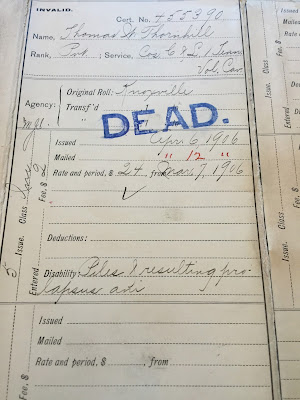 INVALID.
Cert. No. 455390
Name, Thomas N. Thornhill
Rank, Pvt. ; Service, Cos. C & L, 1 Tenn.
Vol. Cav.
Original Roll: Knoxville
Agency: Transf'd
DEAD.
Issued April 6, 1906
Mailed " 12 "
Rate and period, $ 24. from Mar. 7, 1906
Issue. Class
Fee, $ 2
Deductions:
Entered
Disability: Piles & resulting pro-
lapsus ani
Issued
Mailed
Rate and period, $ , from
Issue. Class
Fee, $